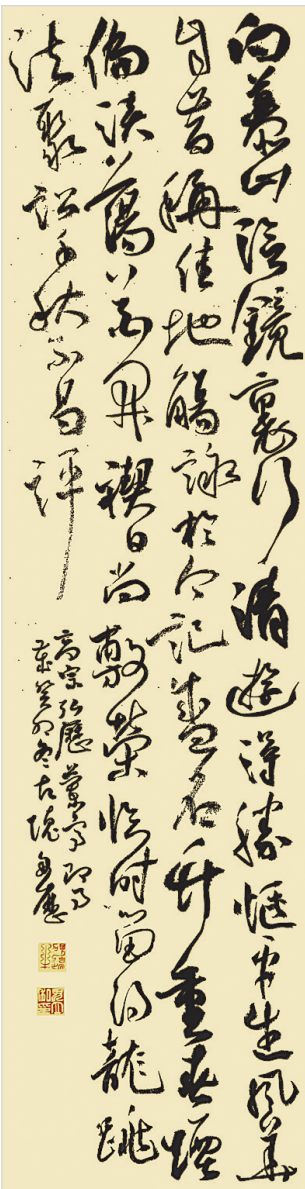 向慕山陰鏡裏行清遊得勝愜平生風華
自昔稱佳地觴詠於今記盛名竹重春煙
偏淡蕩禊日尚敷榮臨時留得龍跳
法聚訟千秋不易評
高宗弘歷蘭亭即事
癸卯冬